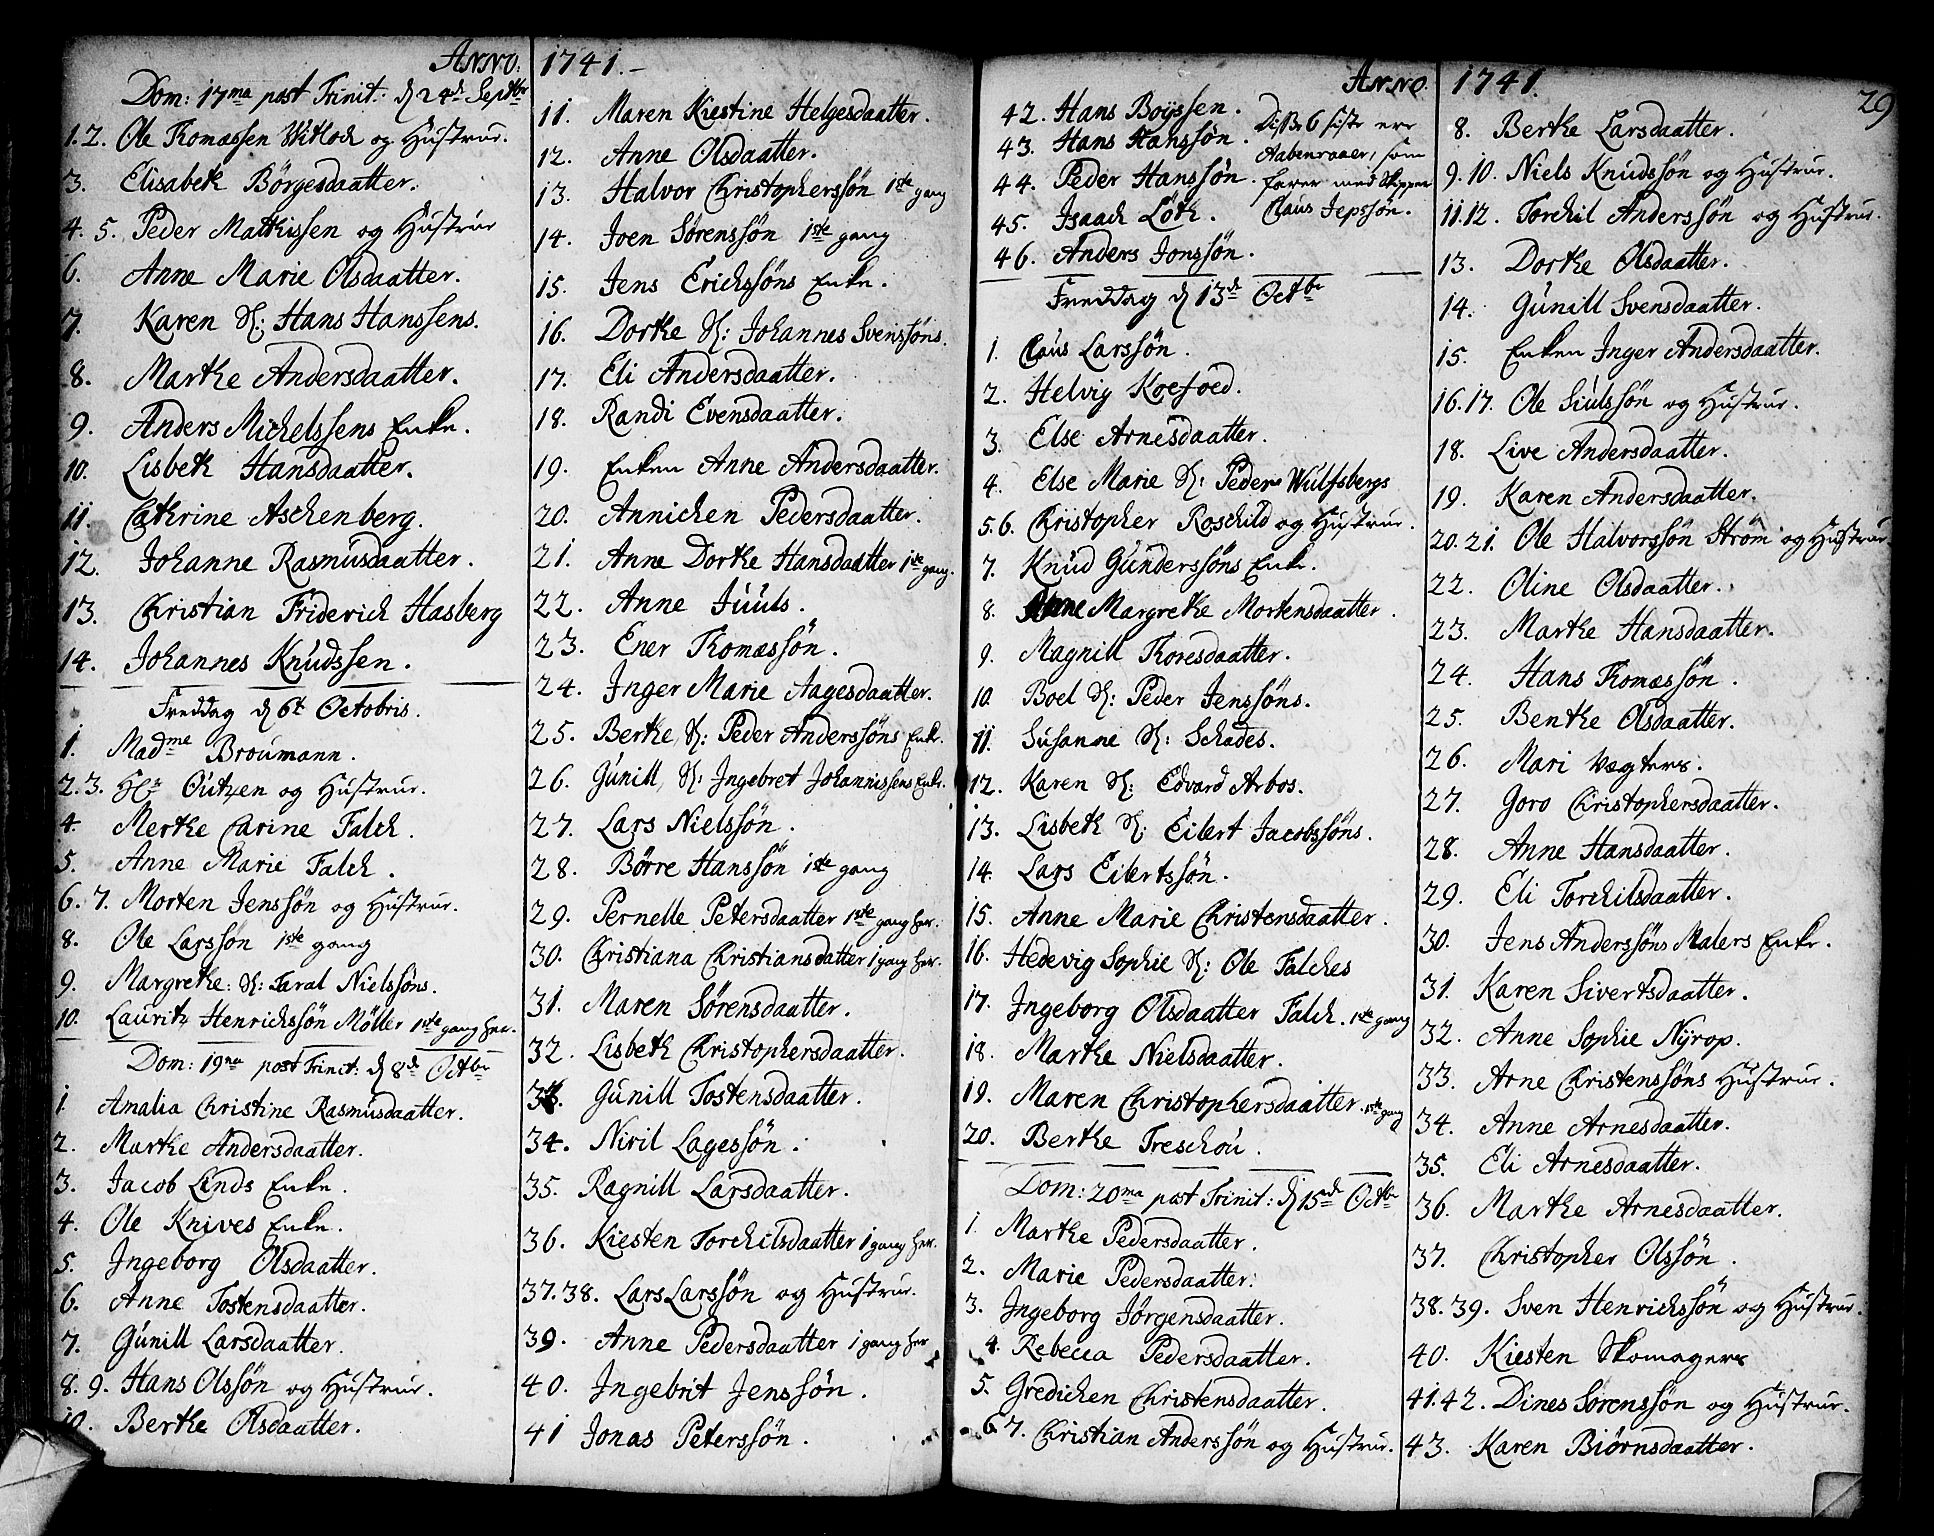 Anno. 1741.
Dom: 17ma post Trinit: d 24de Septbr
1.2. Ole Thomæssen Witloch og Hustrur.
3. Elisabeth Börgesdaatter.
4. 5. Peder Mathissen og Hustrur
6. Anne Marie Olsdaatter.
7. Karen S: Hans Hanssens.
8. Marthe Andersdaatter.
9. Anders Michelssens Enke.
10. Lisbeth Hansdaatter.
11. Cathrine Aschenberg.
12. Johanne Rasmusdaatter.
13. Christian Friderich Hasberg
14. Johannes Knudssen.
Freddag d 6te Octobris.
1. Madme Broumann.
2.3. Hr Outzen og Hustrur.
4. Merthe Carine Falch.
5. Anne Marie Falch.
6. 7. Morten Jenssön og Hustrur.
8. Ole Larssön 1ste gang
9. Margrethe: S: Taral Nielssöns.
10. Lauritz Henrichssön Möller 1ste gang her.
Dom: 19na post Trinit: d 8de Octbr
1. Amalia Christine Rasmusdaatter.
2. Marthe Andersdaatter.
3. Jacob Linds Enke.
4. Ole Knives Enke.
5. Ingeborg Olsdaatter.
6. Anne Tostensdaatter.
7. Gunill Larsdaatter.
8. 9. Hans Olssön og Hustrur.
10. Berthe Olsdaatter.
11. Maren Kiestine Helgesdaatter.
12. Anne Olsdaatter.
13. Halvor Christopherssön 1ste gang
14. Joen Sörenssön 1ste gang
15. Jens Erichssöns Enke.
16. Dorthe S: Johannes Svenssöns.
17. Eli Andersdaatter.
18. Randi Evensdaatter.
19. Enken Anne Andersdaatter.
20. Annichen Pedersdaatter.
21. Anne Dorthe Hansdaatter 1ste gang.
22. Anne Juuls.
23. Ener Thomæssön.
24. Inger Marie Aagesdaatter.
25. Berthe, S: Peder Anderssöns Enke.
26. Gunill, S: Ingebret Johannissens Enke.
27. Lars Nielssön.
28. Börre Hanssön 1ste gang
29. Pernelle Petersdaatter 1ste gang her.
30. Christiana Christiansdatter 1 gang her.
31. Maren Sörensdaatter.
32. Lisbeth Christophersdaatter.
33. Gunill Tostensdaatter.
34. Niril Lagessön.
35. Ragnill Larsdaatter.
36. Kiesten Torchilsdaatter 1 gang her.
37.38. Lars Larssön og Hustrur.
39. Anne Pedersdaatter 1 gang her
40. Ingebrit Jenssön.
41 Jonas Peterssön.
Anno. 1741. 29
42. Hans Boyssen.
43. Hans Hanssön.
44. Peder Hanssön.
45. Isaach Löth.
46. Anders Jonssön.
Disse 6 siste ere
Aabenraaer, som
farer med Skipper
Claus Jepssön.
Freddag d 13de Octbr
1. Claus Larssön.
2. Helvig Koefoed.
3. Else Arnesdaatter.
4. Else Marie S: Peder Wulfsbergs
5.6. Christopher Roschild og Hustrur.
7. Knud Gunderssöns Enke.
8. Anne Margrethe Mortensdaatter.
9. Magnill Thoresdaatter.
10. Boel S: Peder Jenssöns.
11. Susanne S: Schades.
12. Karen S: Edvard Arbos.
13. Lisbeth S: Eilert Jacobssöns.
14. Lars Eilertssön.
15. Anne Marie Christensdaatter.
16. Hedevig Sophie S: Ole Falches
17. Ingeborg Olsdaatter Falch. 1ste gang
18. Marthe Nielsdaatter.
19. Maren Christophersdaatter. 1ste gang
20. Berthe Treschou.
Dom: 20ma post Trinit: d 15de Octbr
1. Marthe Pedersdaatter.
2. Marie Pedersdaatter.
3. Ingeborg Jörgensdaatter.
4. Rebecca Pedersdaatter.
5. Gredichen Christensdaatter.
6 7. Christian Anderssön og Hustrur.
8. Berthe Larsdaatter.
9.10. Niels Knudssön og Hustrur.
11.12. Torchil Anderssön og Hustrur.
13. Dorthe Olsdaatter.
14. Gunill Svensdaatter.
15. Enken Inger Andersdaatter.
16.17. Ole Siulssön og Hustrur.
18. Live Andersdaatter.
19. Karen Andersdaatter.
20.21. Ole Halvorssön Ström og Hustrur
22. Oline Olsdaatter.
23. Marthe Hansdaatter.
24. Hans Thomæssön.
25. Benthe Olsdaatter.
26. Mari Vægters.
27. Goro Christophersdaatter.
28. Anne Hansdaatter.
29. Eli Torchilsdaatter.
30. Jens Anderssöns Malers Enke.
31. Karen Sivertsdaatter.
32. Anne Sophie Nyrop.
33. Arne Christenssöns Hustrur.
34. Anne Arnesdaatter.
35. Eli Arnesdaatter.
36. Marthe Arnesdaatter.
37. Christopher Olssön.
38.39. Sven Henrichssön og Hustrur.
40. Kiesten Skomagers
41.42. Dines Sorenssön og Hustrur.
43. Karen Biörnsdaatter.